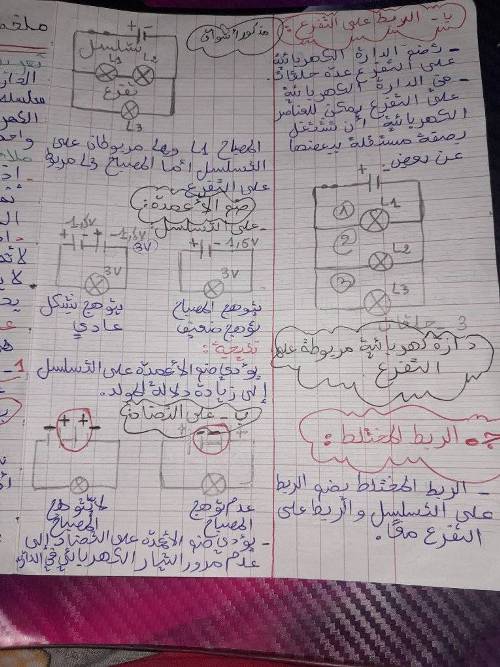 ب - الربط على التفرع:
- تضم الدارة الكهربائية
على التفرع عدة حلقات
- في الدارة الكهربائية
على التفرع يمكن للعناصر
الكهربائية أن تشتغل
بصفة مستقلة ببعضها
عن بعض.
+ -
1
L1
2
L2
3
L3
3 حلقات
دارة كهربائية مربوطة على
التفرع
ج - الربط المختلط:
- الربط المختلط يضم الربط
على التسلسل والربط على
التفرع معًا.
+ -
تسلسل
L1 L2
تفرع
L3
المصباح L1 و L2 مربوطان على
التسلسل أما المصباح L3 مربوط
على التفرع
ضم الأعمدة:
- على التسلسل:
+ - 1,5V
3V
يتوهج المصباح
توهج ضعيف
- 1,5V + - 1,5V
(3V)
3V
يتوهج بشكل
عادي
نتيجة:
يؤدي ضم الأعمدة على التسلسل
إلى زيادة دلالة المولد.
ب - على التضاد:
عدم توهج
المصباح
- + + -
لا يتوهج
المصباح
- يؤدي ضم الأعمدة على التضاد إلى
عدم مرور التيار الكهربائي في الدارة